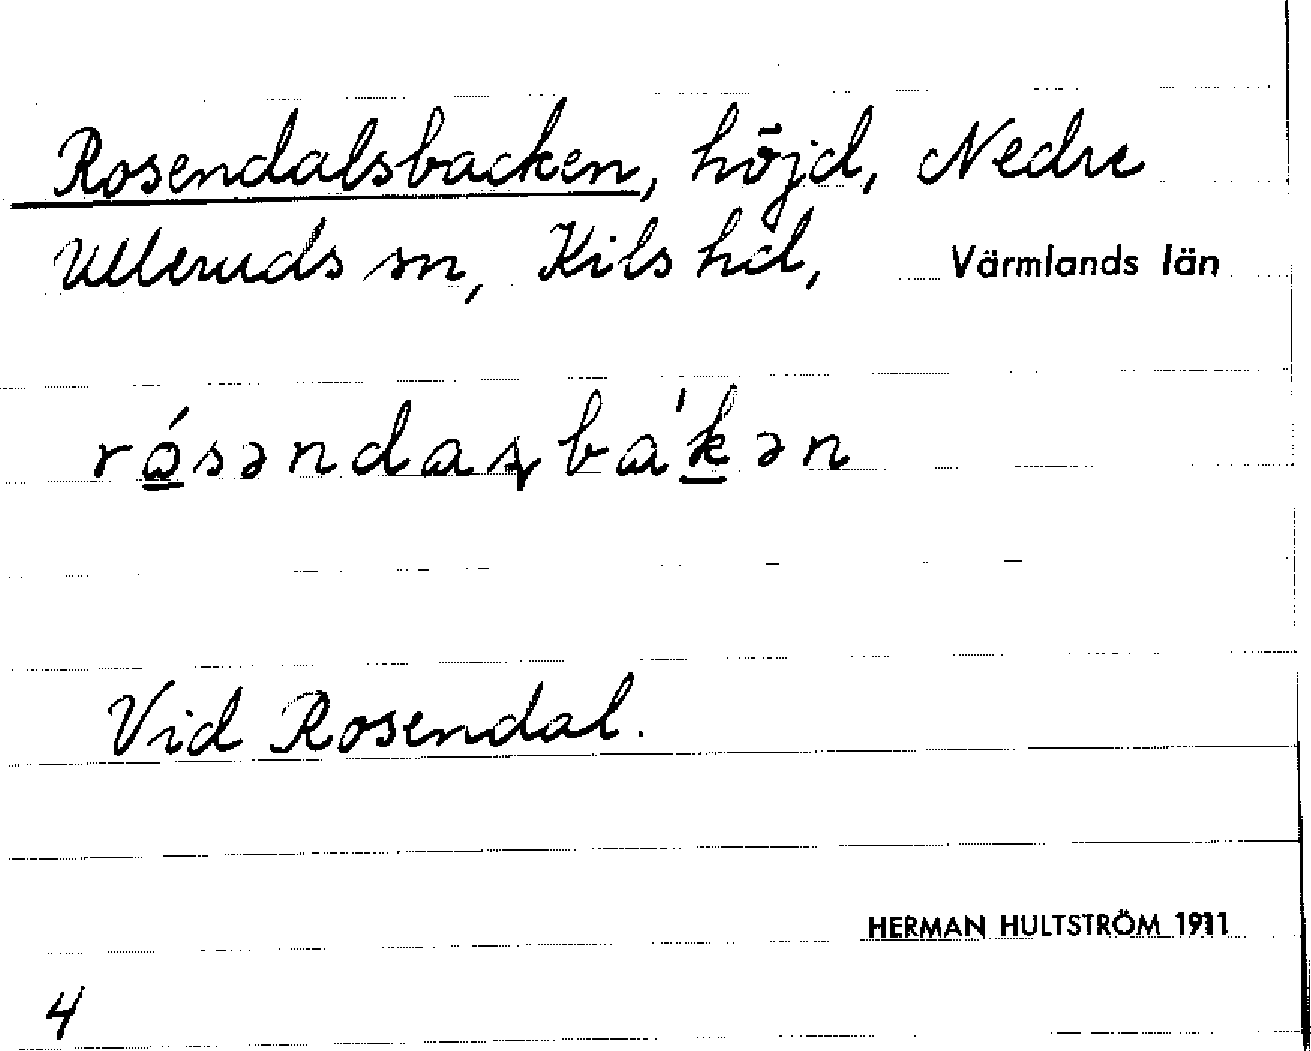 Rosendalsbacken, höjd, Nedre
Ulleruds sn, Kils hd, Värmlands län
rósəndaʂba'kən
Vid Rosendal.
HERMAN HULTSTRÖM 1911
4